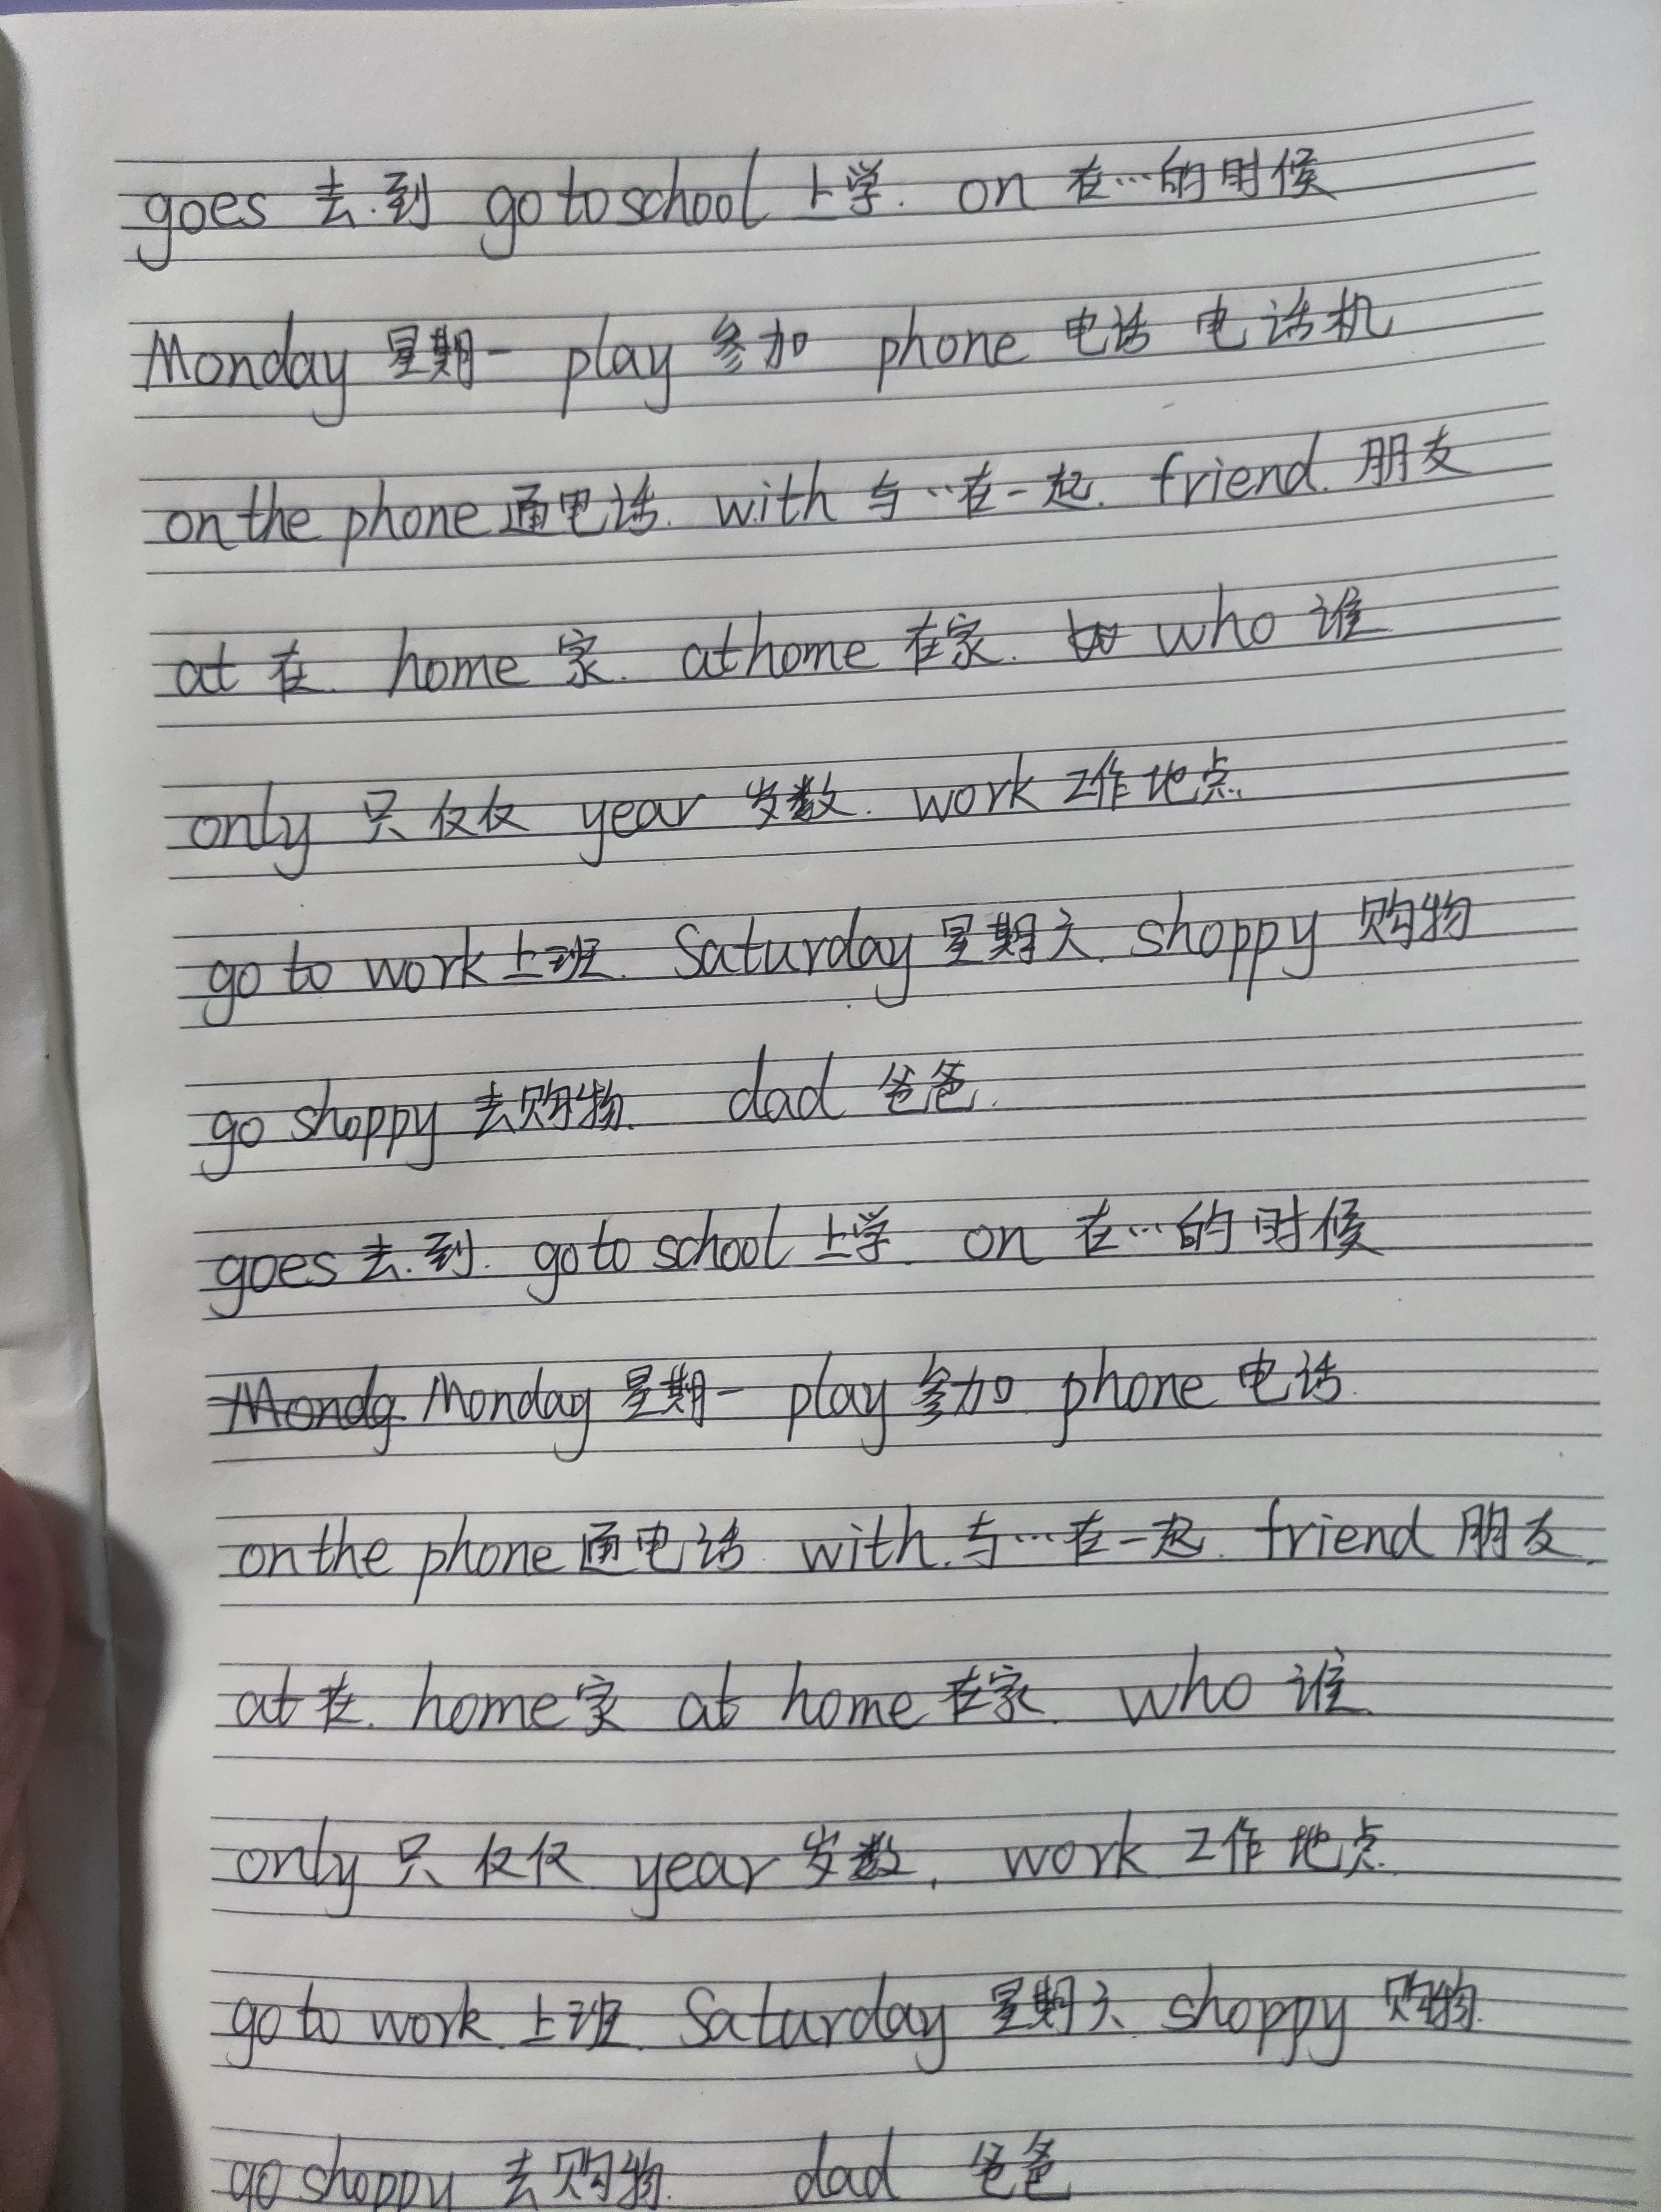 goes 去.到 go to school 上学. on 在…的时候
Monday 星期一 play 参加 phone 电话 电话机
on the phone 通电话. with 与…在一起. friend. 朋友
at 在. home 家. at home 在家. who 谁
only 只 仅仅 year 岁数. work 工作地点.
go to work 上班. Saturday 星期天. shoppy 购物
go shoppy 去购物. dad 爸爸.
goes 去.到. go to school 上学. on 在…的时候
Mondg Monday 星期一 play 参加 phone 电话.
on the phone 通电话 with.与…在一起. friend 朋友.
at 在. home 家 at home 在家. who 谁.
only 只 仅仅 year 岁数. work 工作地点.
go to work. 上班. Saturday 星期天 shoppy 购物.
go shoppy 去购物. dad 爸爸